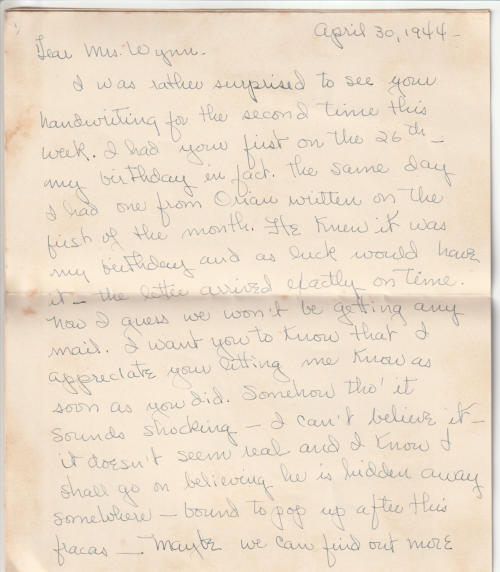 April 30, 1944 -
Dear Mrs. Wynn.
I was rather surprised to see your
handwriting for the second time this
week. I had your first on the 26th -
my birthday in fact. The same day
I had one from Orian written on the
first of the month. He knew it was
my birthday and as luck would have
it - the letter arrived exactly on time.
Now I guess we won't be getting any
mail. I want you to know that I
appreciate your letting me know as
soon as you did. Somehow tho' it
sounds shocking - I can't believe it -
it doesn't seem real and I know I
shall go on believing he is hidden away
somewhere - bound to pop up after this
fracas -. Maybe we can find out more